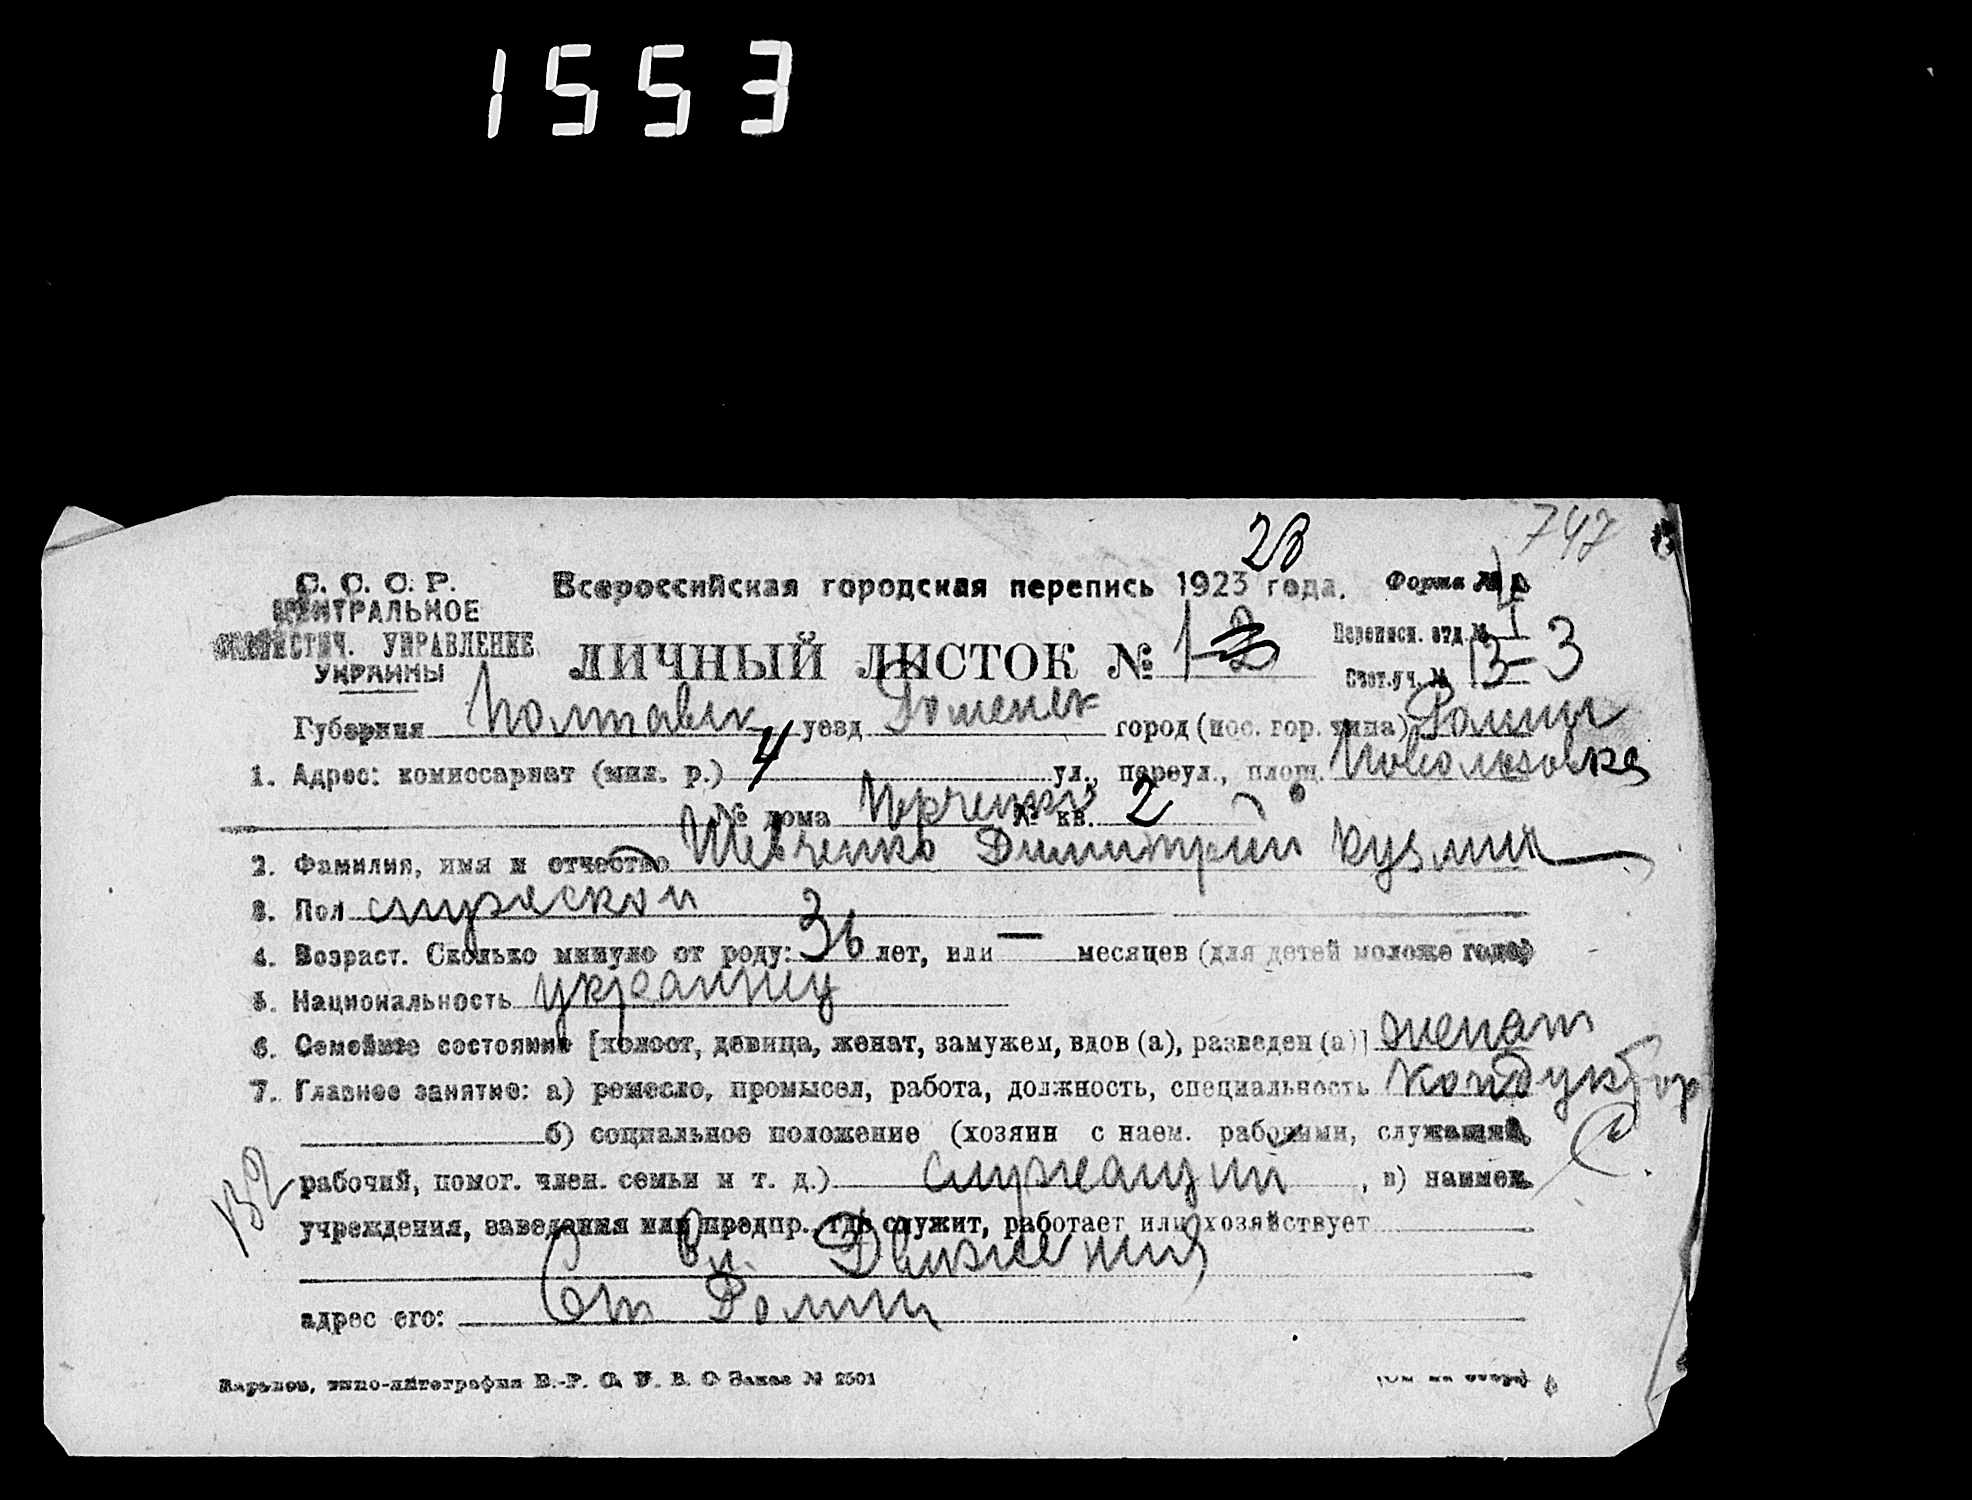 1553
747
28
С. С. С. Р. Всероссийская городская перепись 1923 года. Форма №
ЦЕНТРАЛЬНОЕ
СТАТИСТИЧ. УПРАВЛЕНИЕ ЛИЧНЫЙ ЛИСТОК № 1 Переписн. отд. № I
УКРАИНЫ Счет. уч. № 13-3
Губерния Полтавск уезд Роменск город (пос. гор. типа) Ромны
1. Адрес: комиссариат (мил. р.) 4 ул., переул., площ.
№ дома № кв. 2
2. Фамилия, имя и отчество Шевченко Димитрий Кузмич
3. Пол мужской
4. Возраст. Сколько минуло от роду: 36 лет, или — месяцев (для детей моложе года)
5. Национальность украинец
6. Семейное состояние [холост, девица, женат, замужем, вдов (а), разведен (а)] женат
7. Главное занятие: а) ремесло, промысел, работа, должность, специальность Кондуктор
б) социальное положение (хозяин с наем. рабочими, служащий,
132 рабочий, помог. член. семьи и т. д.) служащий, в) наимен.
учреждения, заведения или предпр., где служит, работает или хозяйствует
Сл. Движения
адрес его: Ст Ромны
Харьков, типо-литография В.-У. С. У. В. О Заказ № 2501
(См на обор)